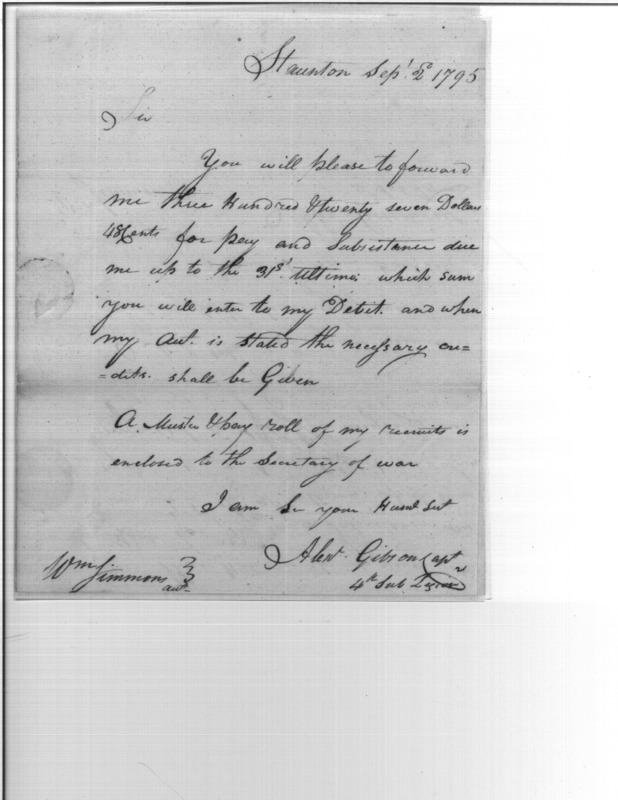 Staunton Sept. 2d 1795
Sir
You will please to forward
me three Hundred & twenty seven Dollars
48 Cents for pay and Subsistance due
me up to the 31st ultimo; which sum
you will enter to my Debit. and when
my Act. is stated the necessary cre=
=dits. shall be Given
A Muster & pay roll of my recruits is
enclosed to the Secretary of war
I am Sir your Humb Svt
Alexr. Gibson Capt
4th Sub Legion
Wm Simmons